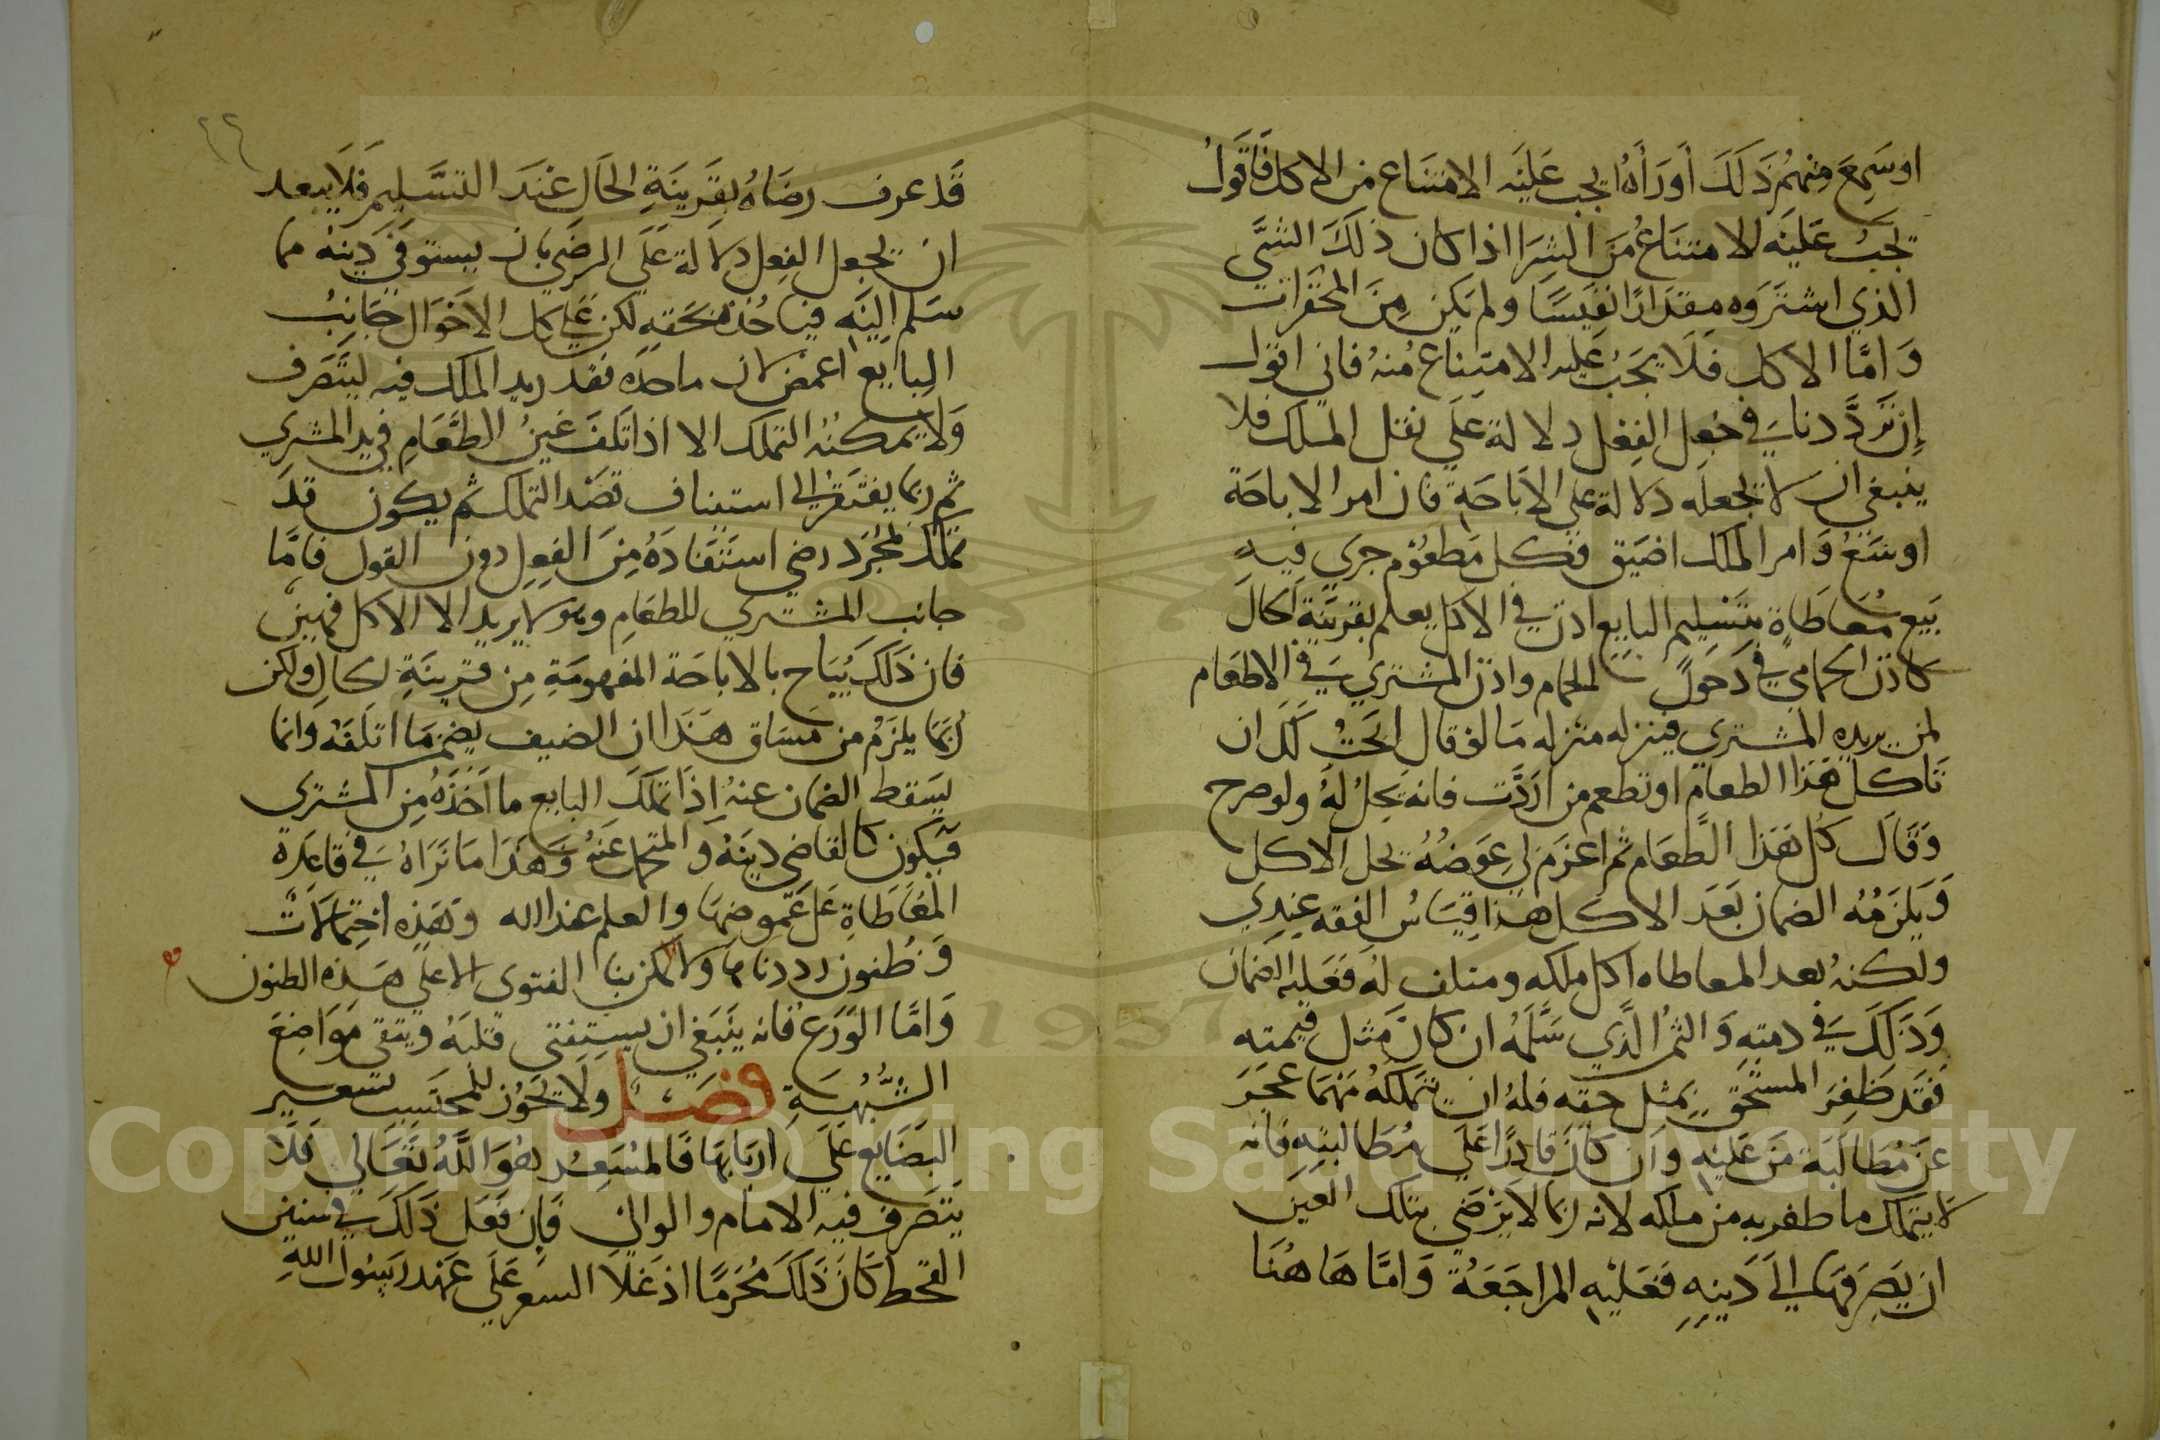 او سَمِعَ مِنهُم ذَلَكَ أورَأهُ ايجب عَليَه الامتنَاع من الاكل فَاقَولُ
تجَبُ عَليَه الامتنَاعُ مَن الشِرَا اذا كان ذلَكَ الشَّي
الذي اشترَوه مقدَارًا نفَيسًا ولم يَكن مِنَ المحَقرات
وَامَّا الاكل فَلَا يَجبُ عَليه الامتِناع مُنهُ فاني اقول
إن تَردَّدنا في جَعل الفِعل دلالة عَلَي نقل الملك فلا
ينبغي ان لا تجعله دلالة علي الابَاحَةِ فان امر الاباحَة
اوسَعُ وَامر الملك اضيَق فكل مَطعُوم جري فِيهِ
بَيع مُعَاطَاةٍ بتَسليم البايع اذن في الاكل يعلم بقرَينَة الحالَ
كاذن الحمامي في دَخولَ الحمام واذن المشتري في الاطعَام
لمن يريده المشتري فينزله منزله مَا لو قال ابحَتُ لَكَ ان
تَاكل هَذا الطعامِ او تطعم من ارَدَّت فانه يَحِلُ لَهُ ولو صرح
وَقَالَ كُل هَذا الطَعَام ثم اغرَم لي عِوَضُهُ يحل الاكل
وَيَلزَمُهُ الضمان بَعَد الاكل هذا قِيَاسُ الفقه عندِي
ولكنهُ بعد المعاطاه اكل ملكه ومتلف لهُ فَعَليه الضمان
وَذَلَكَ في دمتهِ وَالثمُن الذَي سَلَّمَهُ ان كَانَ مثل قيمته
فَقَد ظَفِرَ المسَتَحَق بَمثِل حَقِه فلهُ ان يتملكهُ مَهَما عَجَزَ
عَن مُطَالَبَة مَن عَليَهِ وان كانَ قَادِرًا عَلَي مُطَالبتِهِ فانه
لا يتملك ما ظفر به من ملكه لانه ربما لَا يَرضَي بتلك العَين
ان يَصِرفَها الي دَينِهِ فَعَليَهِ المراجَعَةُ وَامَّا هَا هُنَا
قَد عرف رضَاهُ بقَرِينَةِ الحَال عنَدَ التسَليِم فَلَا يبعد
ان تجعل الفِعل دلالة عَلَي الرِضَي بان يستوفَي دَينَهُ مما
سَلم اليَه فيَاخُذهُ بحَقهِ لكن عَلي كل الاحَوَال جَانبُ
البِايع اغمض لان ما اخذه فقد يريد المالك فيه ليتَصَرف
وَلَا يمكنُهُ التملك الا اذا تَلفَ عَينُ الطَّعَامِ في يد المشري
ثم ربما يفتَقر الي استيناف قصَد التملك ثم يكون قدَ
تملك بمُجَرَد رضي استَفَادَهُ مِنَ الفِعِلِ دون القول فامَّا
جانب المشتري للطعَامِ وهو لا يريد الا الاكل فهَينُ
فان ذَلَكَ يُبَاح بالاباحَة المفهومَةِ مِن قرِينَةِ لحَالِ ولكن
رُبَّما يلزَمُ من مَسَاق هَذَا ان الضيف يضمَن مَا اتلَفَهُ وانما
يَسَقط الضمان عنهُ اِذَا تملَّكَ البايع ما اخَذَهُ مِن المشتري
فَيكون كالقاضي دينَهُ والمتحمل عَنهُ وَهَذا مَا نَرَاهُ في قاعَدة
المُعَاطَاةِ عَلى غموضِها والعلم عند الله وَهَذِه احِتمالاتُ
وَظُنون رددناها ولا يمكن بنا الفتوى الا علي هَذِه الظنون
وَامَّا الوَرَع فَانه ينَبَغي ان يستَفتي قَلبَهُ ويتقي مَوَاضِعَ
الشُّبُهَةِ فصَل ولا يَجَوُز للمحتَسِب تسعير
البَضَايع عَلَي اربَابهَا فَالمسَعر هُوَ اللَّهُ تَعَالي فَلَا
يَتصَرفُ فيه الامَام والوالي فَاِن فَعَل ذَلَكَ في سنين
القحط كَانَ ذَلَكَ مُحَرمًا اذ غَلَا السعر عَلَي عَهَد رَسَوُل اللهِ
Copyright © King Saud University
1957